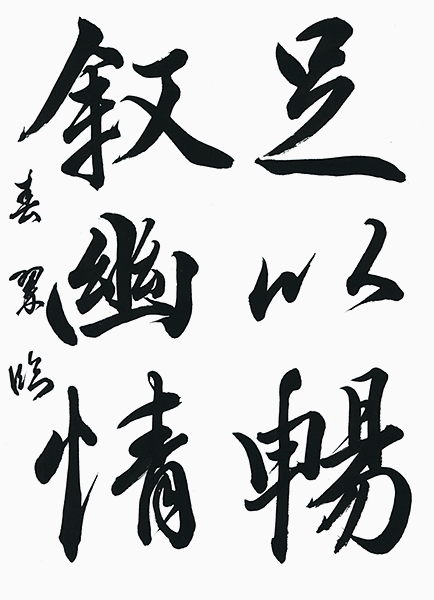 足以暢
叙幽情
春翠臨